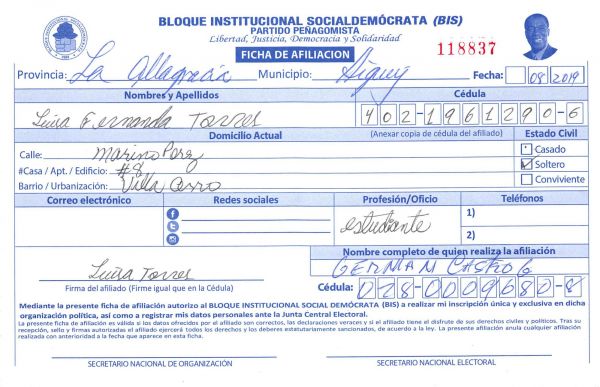 BLOQUE INSTITUCIONAL SOCIALDEMÓCRATA (BIS)
PARTIDO PEÑAGOMISTA
Libertad, Justicia, Democracia y Solidaridad
FICHA DE AFILIACION
118837
Provincia: La Altagracia Municipio: Higuey Fecha: 08 2019
Nombres y Apellidos Cédula
Luisa Fernanda Torres 402-1961290-6
Domicilio Actual (Anexar copia de cédula del afiliado) Estado Civil
Calle: Marino Perez Casado
#Casa / Apt. / Edificio: #8 Soltero
Barrio / Urbanización: Villa Cerro Conviviente
Correo electrónico Redes sociales Profesión/Oficio Teléfonos
estudiante 1)
2)
Nombre completo de quien realiza la afiliación
GERMAN CASTRO G
Luisa Torres
Firma del afiliado (Firme igual que en la Cédula) Cédula: 028-0009680-8
Mediante la presente ficha de afiliación autorizo al BLOQUE INSTITUCIONAL SOCIAL DEMÓCRATA (BIS) a realizar mi inscripción única y exclusiva en dicha
organización política, así como a registrar mis datos personales ante la Junta Central Electoral.
La presente ficha de afiliación es válida si los datos ofrecidos por el afiliado son correctos, las declaraciones veraces y si el afiliado tiene el disfrute de sus derechos civiles y políticos. Tras su
recepción, sello y firmas autorizadas el afiliado ejercerá todos los derechos y los deberes estatutariamente sancionados, de acuerdo a la ley. La presente afiliación anula cualquier afiliación
realizada con anterioridad a la fecha que aparece en esta ficha.
SECRETARIO NACIONAL DE ORGANIZACIÓN SECRETARIO NACIONAL ELECTORAL